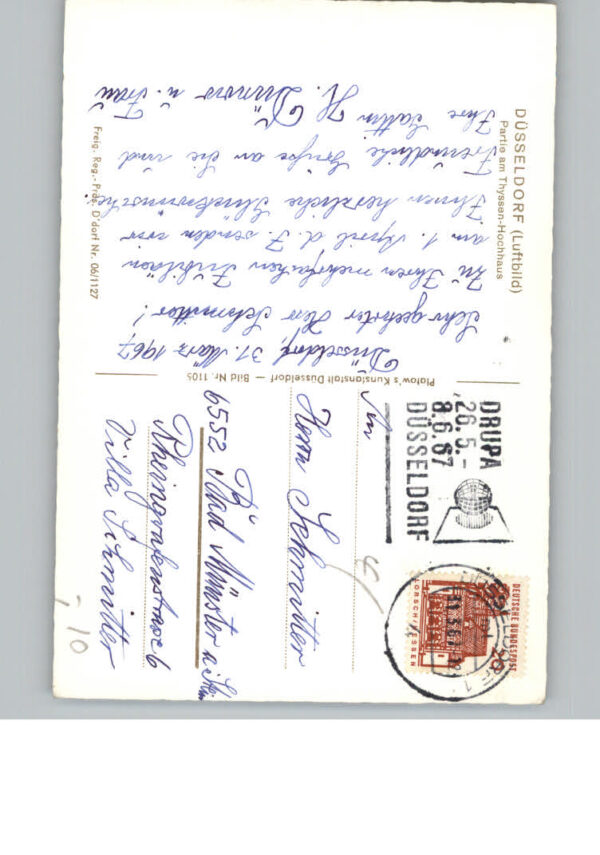 DÜSSELDORF (Luftbild)
Partie am Thyssen-Hochhaus
Düsseldorf, 31. März 1967
Sehr geehrter Herr Schmitter!
Zu Ihrem mehrfachen Jubiläum
am 1. April d. J. senden wir
Ihnen herzliche Glückwünsche.
Freundliche Grüße an Sie und
Ihre Gattin H. u. Frau
Freig. Reg.-Präs. D'dorf Nr. 06/1127
Platow's Kunstanstalt Düsseldorf — Bild Nr. 1105
DRUPA
26.5.-
8.6.67
DÜSSELDORF
DEUTSCHE BUNDESPOST
20
LORSCH/HESSEN
An
Herrn Schmitter
6552 Bad Münster a. Stein
Rheingrafenstrasse 6
Villa Schmitter
-,10